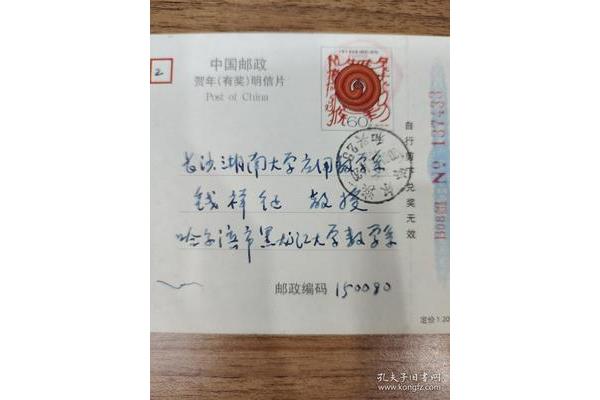 2
中国邮政
贺年(有奖)明信片
Post of China
60
长沙湖南大学应用数学系
钱祥征 教授
哈尔滨市黑龙江大学数学系
邮政编码 150080
自行剪下兑奖无效
B0831 No 137433
定价1.20
孔夫子旧书网
www.kongfz.com